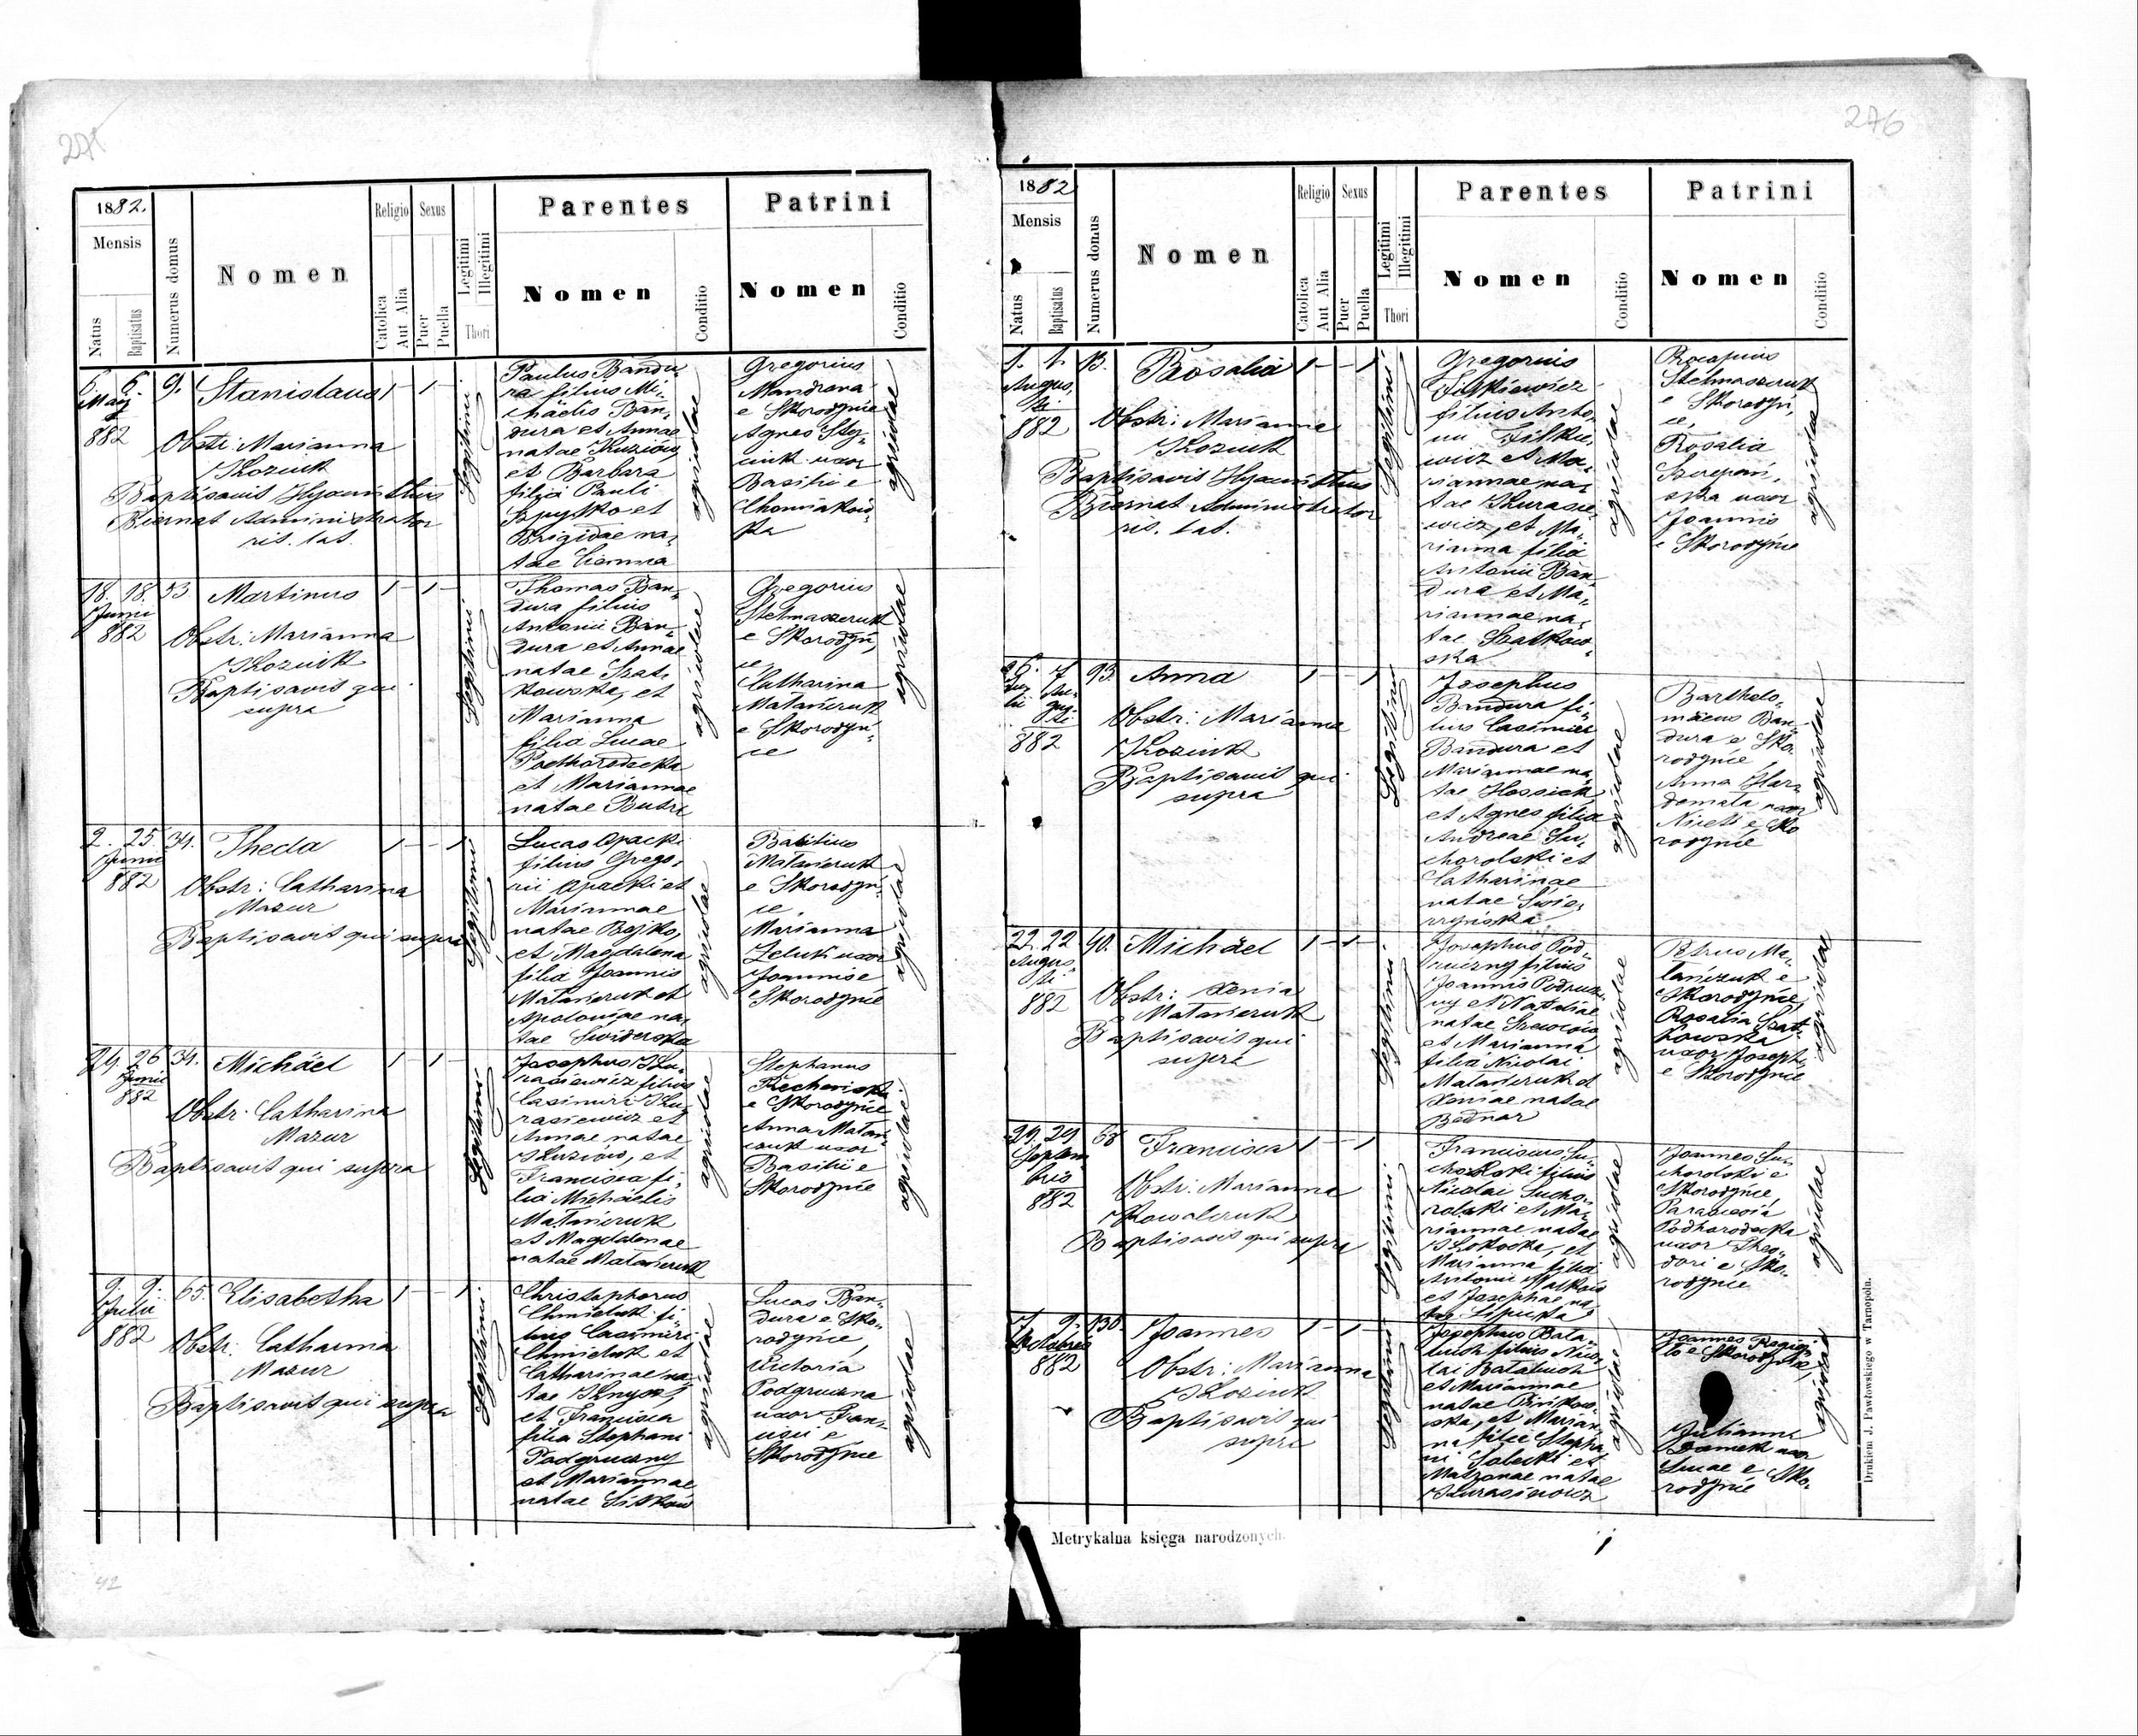 275
1882.
Mensis
Natus
Baptisatus
Numerus domus
Nomen
Religio
Catolica
Aut Alia
Sexus
Puer
Puella
Legitimi
Illegitimi
Thori
Parentes
Nomen
Conditio
Patrini
Nomen
Conditio
6. 6. 9. Stanislaus 1 - 1 -
Maji
882
Obstr: Marianna
Koziuk
Baptisavit Hyacinthus
Biernat Administrator
rit. lat.
Legitimi
Paulus Bandu-
ra filius Mi-
chäelis Ban-
dura et Annae
natae Kuziów
et Barbara
filia Pauli
et
Brigidae na-
tae
agricolae
Gregorius
Mandrona
e Skorodyńce
Agnes
uxor
Basilii e
Chomiakow-
ka
agricolae
18. 18. 53 Martinus 1 - 1 -
Junii
882
Obstr: Marianna
Koziuk
Baptisavit qui
supra
Legitimi
Thomas Ban-
dura filius
Antonii Ban-
dura et Annae
natae Szat-
kowska, et
Marianna
filia Lucae
Podhorodecka
et Mariannae
natae
agricolae
Gregorius
Stelmaszczuk
e Skorodyń,
ce,
Catharina
Matańczuk
e Skorodyń-
ce
agricolae
2. 25. 34. Thecla 1 - - 1
Junii
882
Obstr: Catharina
Mazur
Baptisavit qui supra
Legitimi
Lucas Opacki
filius Grego-
rii Opacki et
Mariannae
natae Bojko,
et Magdalena
filia Joannis
Matańczuk et
Apoloniae na-
tae Świderska
agricolae
Basilius
Matańczuk
e Skorodyń-
ce,
Marianna
Zeluk uxor
Joannis e
Skorodyńce
agricolae
24. 26. 34. Michäel 1 - 1 -
Junii
882
Obstr. Catharina
Mazur
Baptisavit qui supra
Legitimi
Josephus Ku-
rasiewicz filius
Casimiri Ku-
rasiewicz et
Annae natae
Kuziów, et
Francisca fi-
lia Michäelis
Matańczuk
et Magdalenae
natae Matańczuk
agricolae
Stephanus
e Skorodyńce
Anna Matań-
czuk uxor
Basilii e
Skorodyńce
agricolae
9. 9. 65. Elisabetha 1 - - 1
Julii
882
Obstr: Catharina
Mazur
Baptisavit qui supra
Legitimi
Christophorus
Chmieluk fi-
lius Casimiri
Chmieluk et
Catharinae na-
tae
et Francisca
filia Stephani
Podgruczny
et Mariannae
natae
agricolae
Lucas Ban-
dura e Sko-
rodyńce,
Victoria
Podgruczna
uxor Fran-
cisci e
Skorodyńce
agricolae
42
276
1882
Mensis
Natus
Baptisatus
Numerus domus
Nomen
Religio
Catolica
Aut Alia
Sexus
Puer
Puella
Legitimi
Illegitimi
Thori
Parentes
Nomen
Conditio
Patrini
Nomen
Conditio
1. 1. 13. Rosalia 1 - - 1
Augus-
ti
882
Obstr: Marianna
Koziuk
Baptisavit Hyacinthus
Biernat Administrator
rit. lat.
Legitimi
Gregorius
filius Anto-
nii
et Ma-
riannae na-
tae Kurasie-
wicz, et Ma-
rianna filia
Antonii Ban-
dura et Ma-
riannae na-
tae Szatkow-
ska
agricolae
Procopius
Stelmaszczuk
e Skorodyń,
ce,
Rosalia
Szczepań-
ska uxor
Joannis
e Skorodyńce
agricolae
26. 7. 93. Anna 1 - - 1
Ju-
lii Au-
gus-
ti
882
Obstr: Marianna
Koziuk
Baptisavit qui
supra
Legitimi
Josephus
Bandura fi-
lius Casimiri
Bandura et
Mariannae na-
tae
et Agnes filia
Andreae Su-
chorolski et
Catharinae
natae
agricolae
Bartholo-
mäeus Ban-
dura e Sko-
rodyńce,
Anna
uxor
e Sko
rodyńce
agricolae
22. 22 40. Michäel 1 - 1 -
Augus-
ti
882
Obstr: Xenia
Matańczuk
Baptisavit qui
supra
Legitimi
Josephus Pod-
ruczny filius
Joannis Podrucz-
ny et Nataliae
natae
et Marianna
filia Nicolai
Matańczuk et
Xeniae natae
Bednar
agricolae
Petrus Ma-
tańczuk e
Skorodyńce,
Rosalia Szat-
kowska
uxor Josephi
e Skorodyńce
agricolae
29. 29 68 Francisca 1 - - 1
Septem-
bris
882
Obstr: Marianna
Kowalczuk
Baptisavit qui supra
Legitimi
Franciscus Su-
chorolski filius
Nicolai Sucho-
rolski et Ma-
riannae natae
et
Marianna filia
Antonii
et Josephae na-
tae
agricolae
Joannes Su-
chorolski e
Skorodyńce,
Parascevia
Podhorodecka
uxor Theo-
dori e Sko-
rodyńce
agricolae
7. 9. 130. Joannes 1 - 1 -
Octobris
882
Obstr: Marianna
Koziuk
Baptisavit qui
supra
Legitimi
Josephus Bała-
buch filius Nico-
lai Bałabuch
et Mariannae
natae
et Marian-
na filia Stepha-
ni Sobecki et
natae
Kurasiewicz
agricolae
Joannes
e Skorodyńce,
Julianna
uxor
Lucae e Sko-
rodyńce
agricolae
Metrykalna księga narodzonych.
Drukiem J. Pawłowskiego w Tarnopolu.